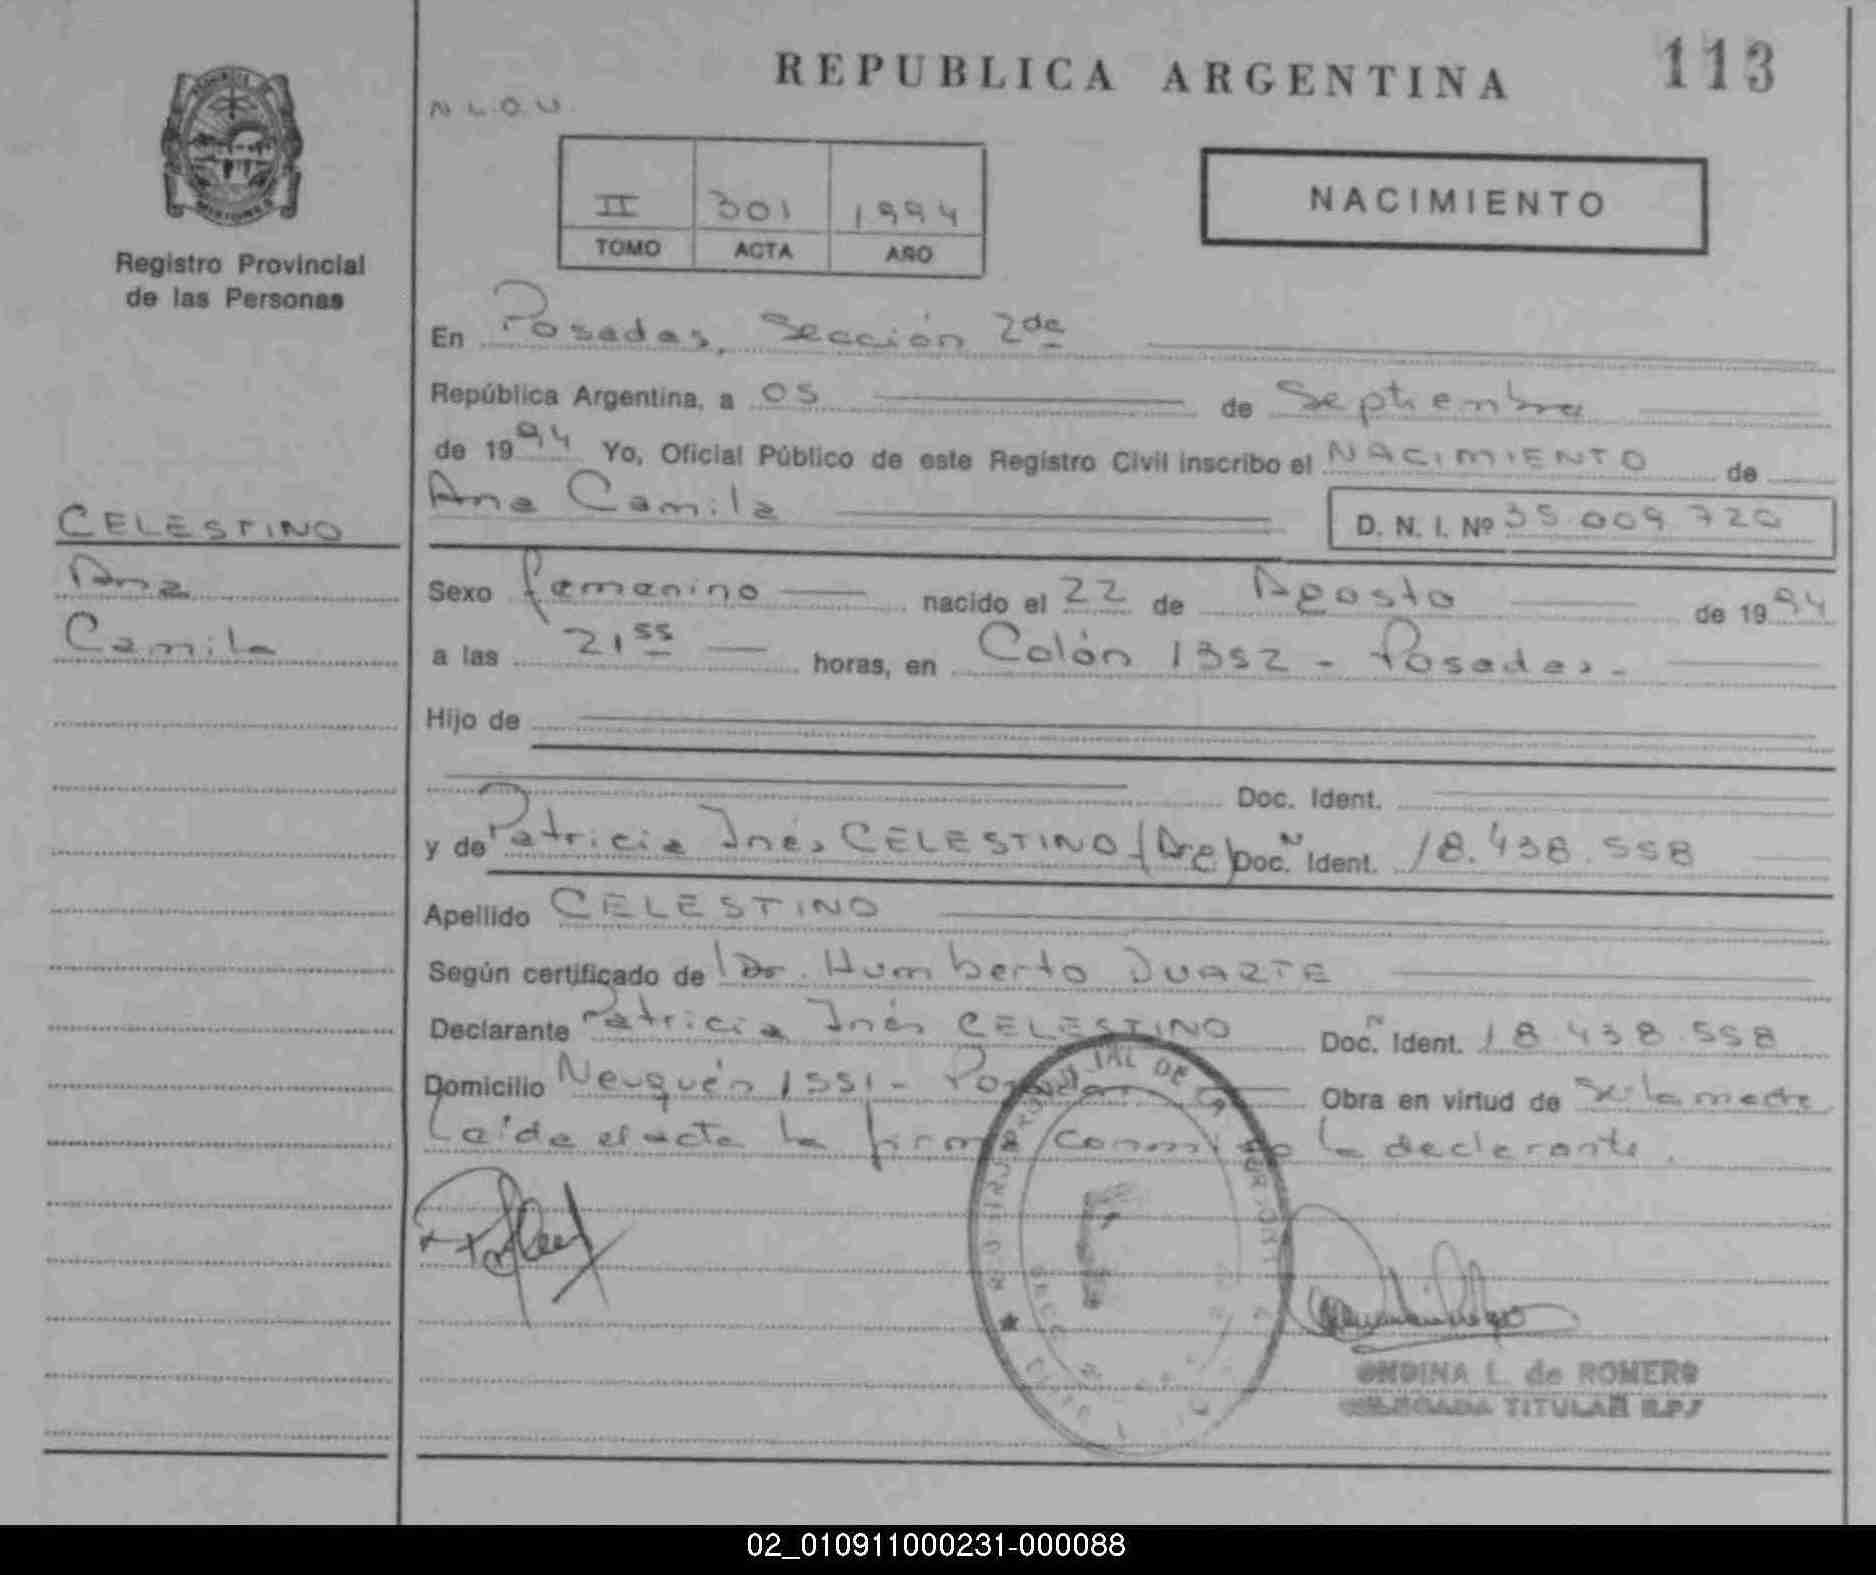 REPUBLICA ARGENTINA
113
N L.O.U.
II 301 1994
TOMO ACTA AÑO
NACIMIENTO
MISIONES
Registro Provincial
de las Personas
En Posadas, Sección 2da
República Argentina, a 05 de Septiembre
de 1994 Yo, Oficial Público de este Registro Civil inscribo el NACIMIENTO de
Ana Camila
D. N. I. Nº 35.009.720
CELESTINO
Ana
Camila
Sexo femenino nacido el 22 de Agosto de 1994
a las 21 55 horas, en Colón 1352 - Posadas -
Hijo de
Doc. Ident.
y de Patricia Inés CELESTINO (Arg) Doc. Ident. 18.438.558
Apellido CELESTINO
Según certificado de Dr. Humberto DUARTE
Declarante Patricia Inés CELESTINO Doc. Ident. 18.438.558
Domicilio Neuquén 1551 - Posadas Obra en virtud de ser la madre
Leída el acta la firma conmigo la declarante.
ONDINA L. de ROMERO
DELEGADA TITULAR R.P.
02_010911000231-000088